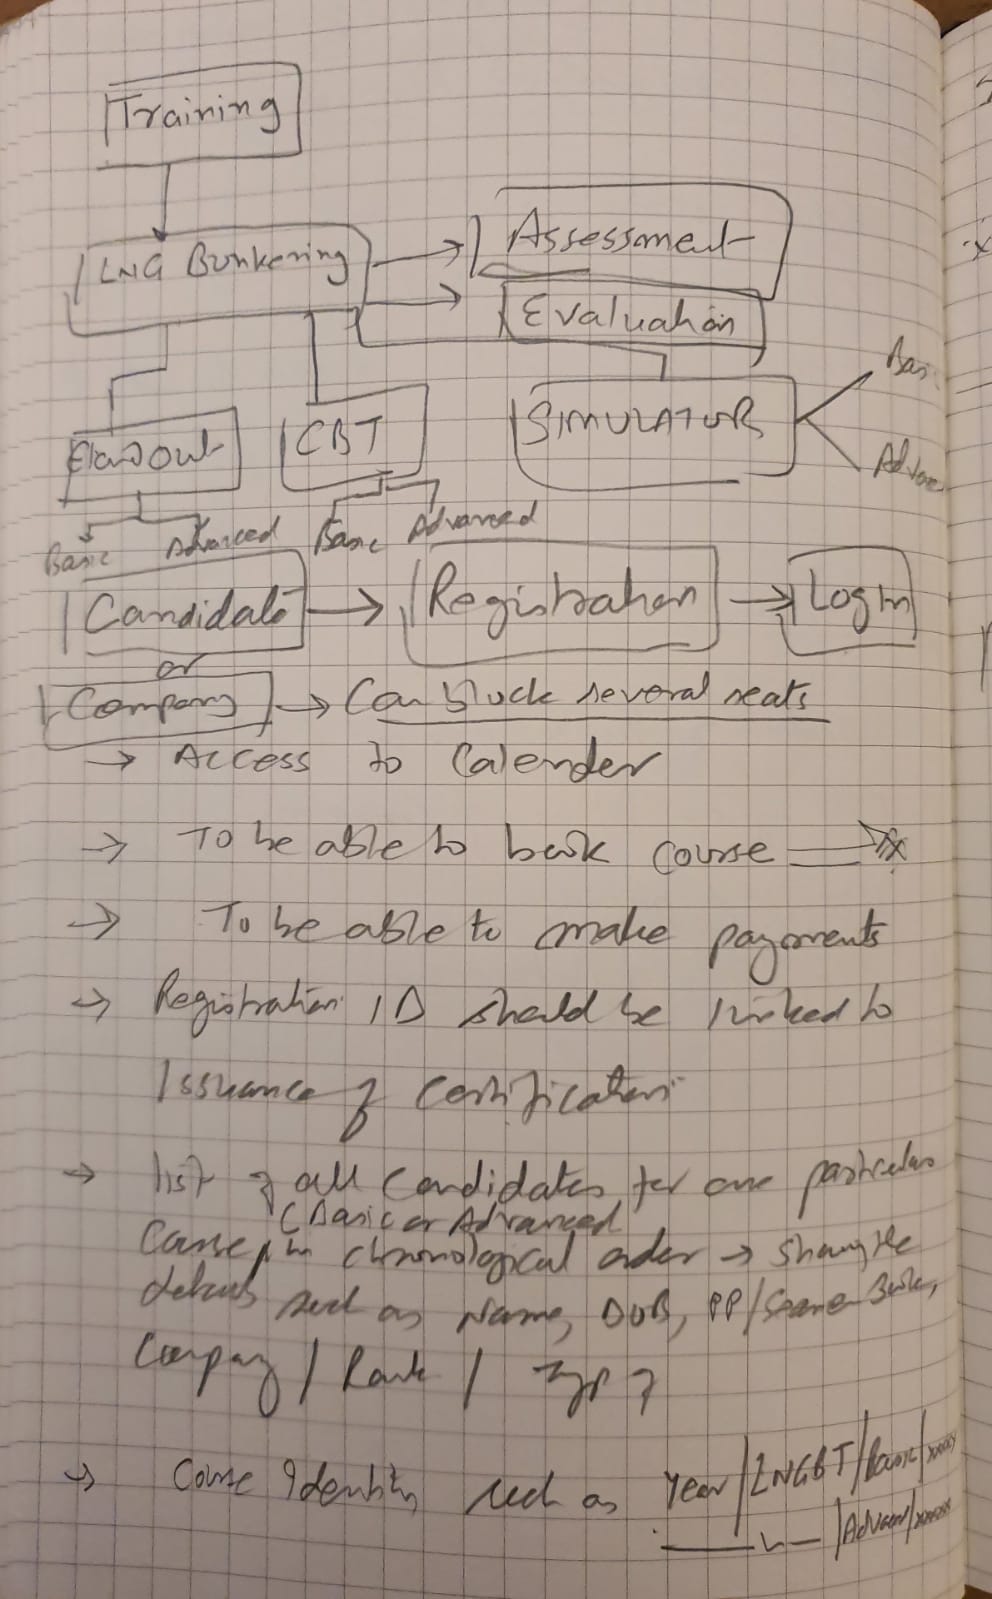 Training
LNG Bunkering
Assessment
Evaluation
Handout
CBT
SIMULATOR
Basic
Advanced
Basic
Advanced
Basi
Advanc
Candidate
Registration
Login
or
Company → Can block several seats
→ Access to Calender
→ To be able to book course
→ To be able to make payments
→ Registration ID should be linked to
Issuance of certification
→ list of all candidates for one particular
(Basic or Advanced
Course, in chronological order → Showing the
details such as Name, DOB, PP/Seaman Book,
Company / Rank / Type of
→ Course Identity such as Year/LNGBT/Basic/xxxxx
/Advan/xxxxxx